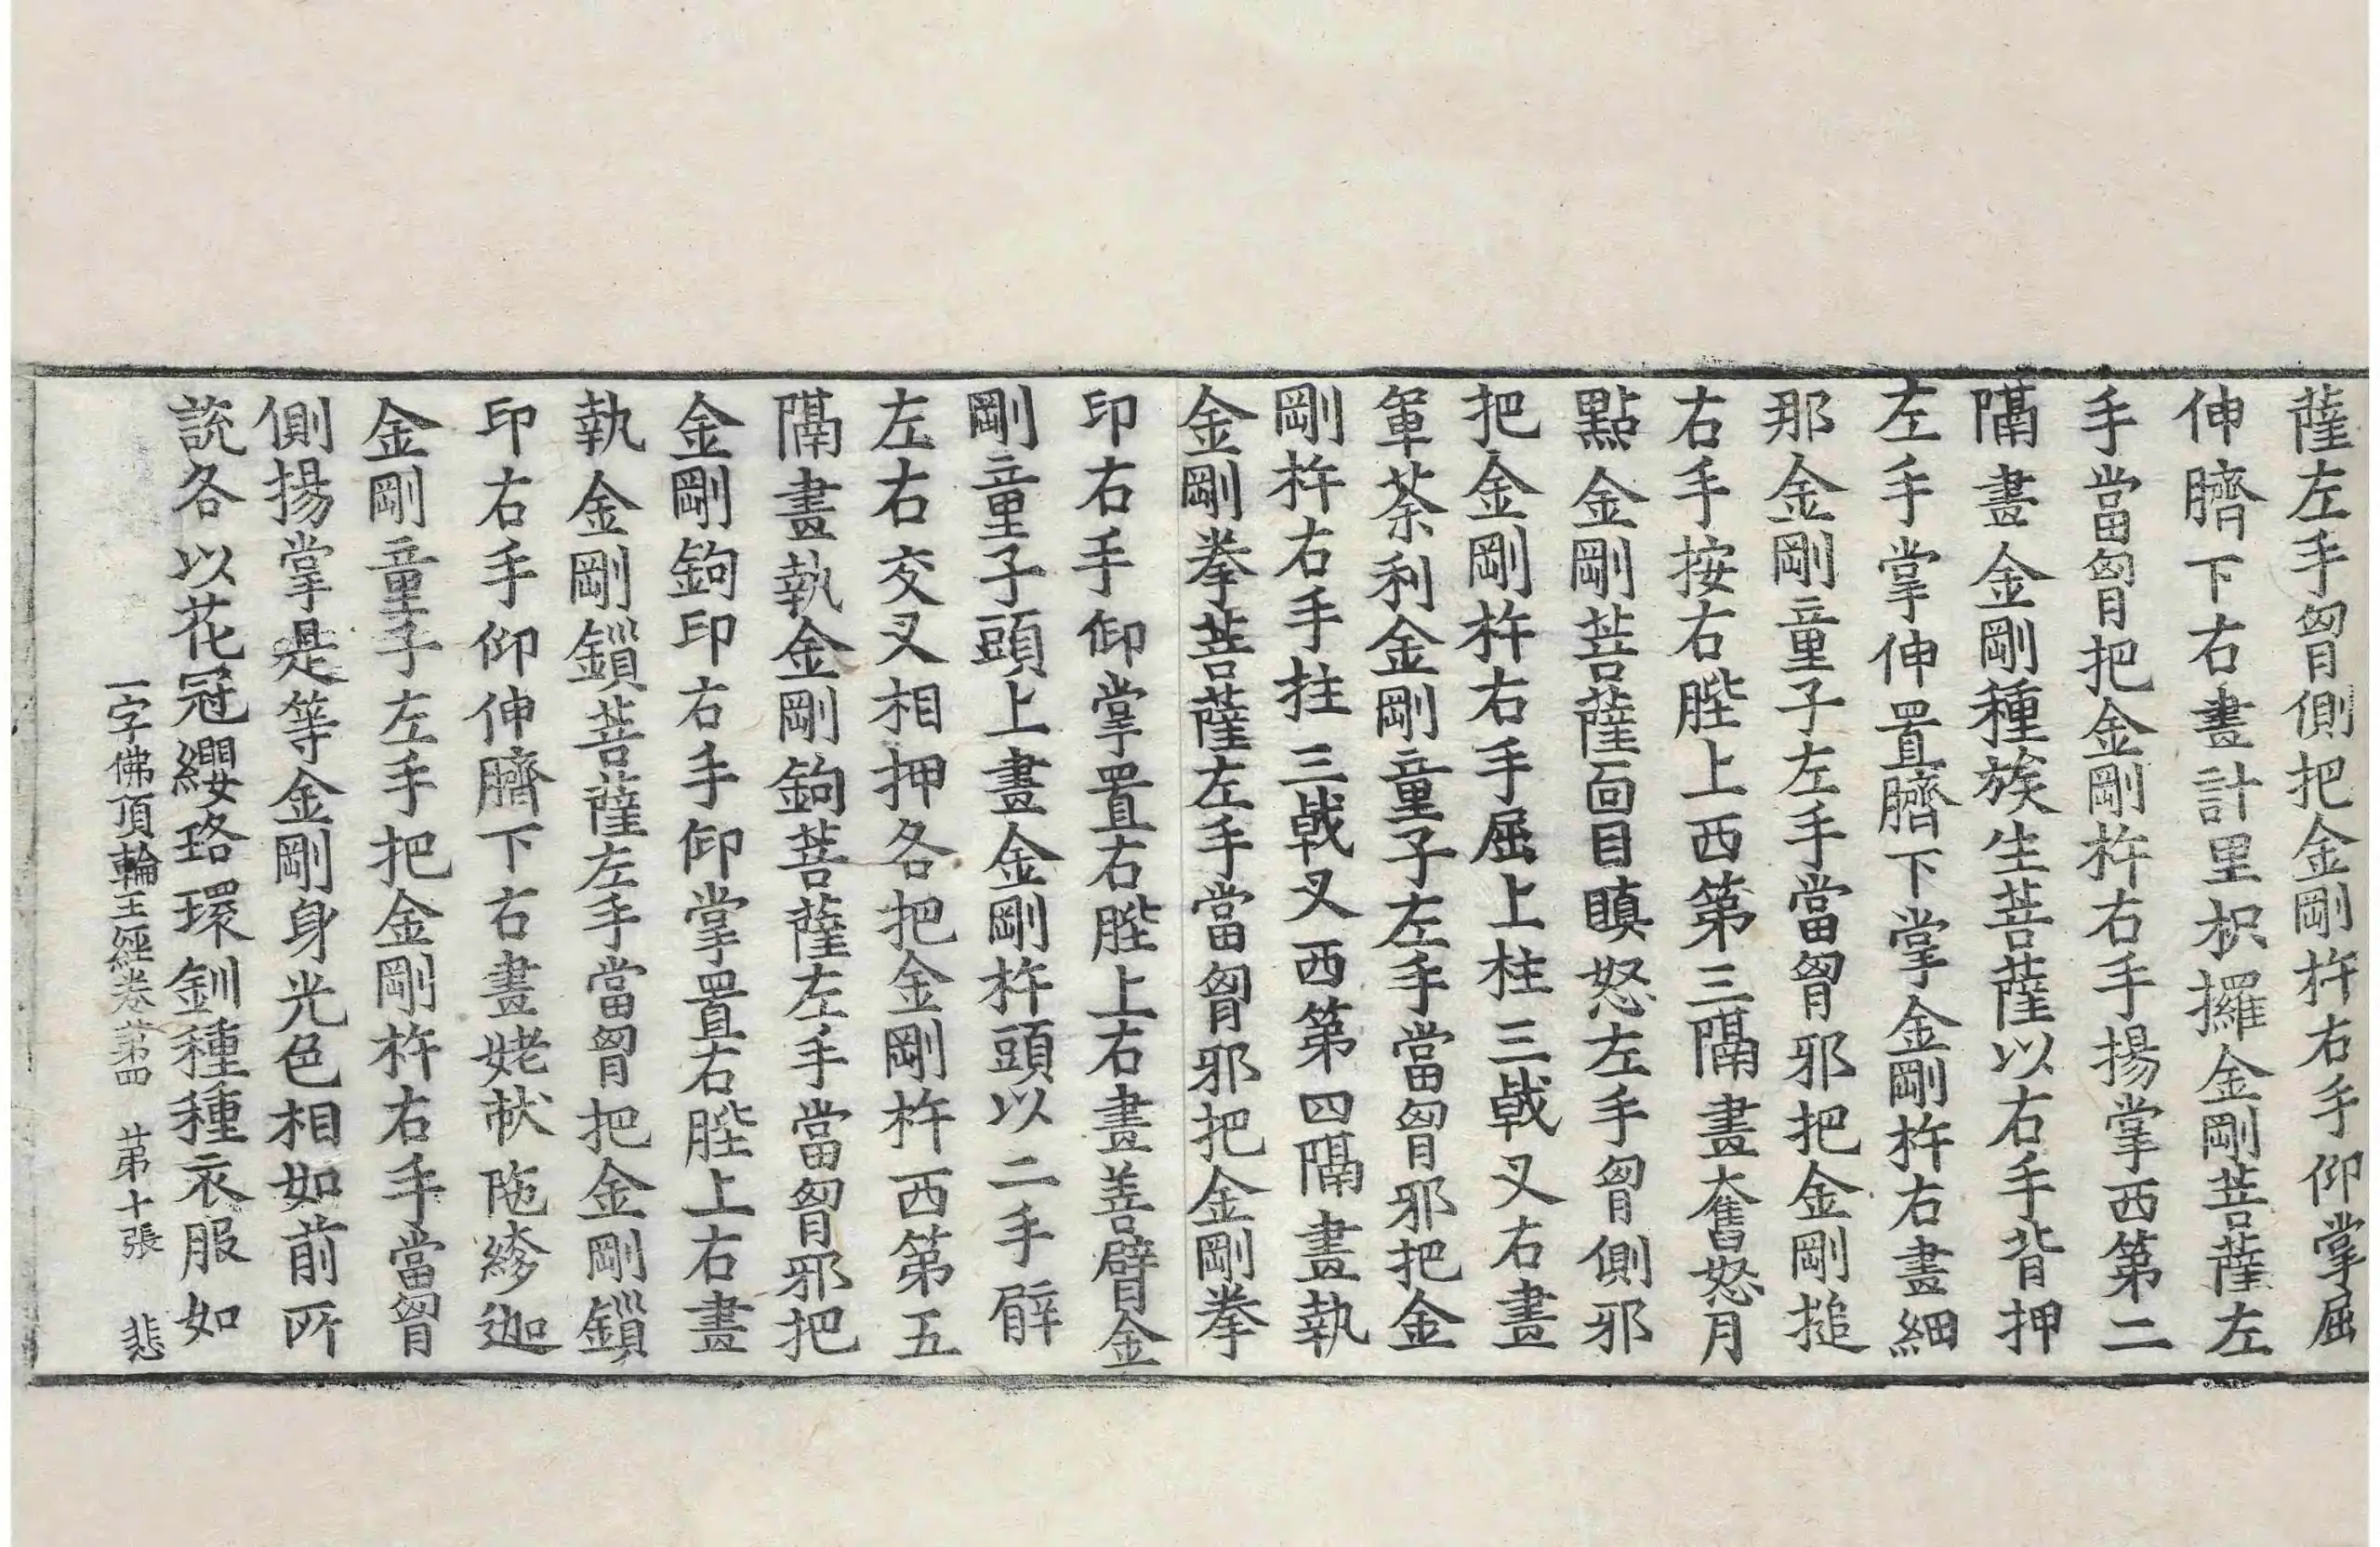 薩左手胷側把金剛杵右手仰掌屈
伸臍下右畫計里枳攞金剛菩薩左
手當胷把金剛杵右手揚掌西第二
隔畫金剛種族生菩薩以右手背押
左手掌伸置臍下掌金剛杵右畫細
那金剛童子左手當胷邪把金剛搥
右手按右䏶上西第三隔畫奮怒月
點金剛菩薩面目瞋怒左手胷側邪
把金剛杵右手屈上柱三戟叉右畫
軍荼利金剛童子左手當胷邪把金
剛杵右手拄三戟叉西第四隔畫執
金剛拳菩薩左手當胷邪把金剛拳
印右手仰掌置右䏶上右畫善臂金
剛童子頭上畫金剛杵頭以二手臂
左右交叉相押各把金剛杵西第五
隔畫執金剛鉤菩薩左手當胷邪把
金剛鉤印右手仰掌置右䏶上右畫
執金剛鎻菩薩左手當胷把金剛鎻
印右手仰伸臍下右畫姥馱陁縿迦
金剛童子左手把金剛杵右手當胷
側揚掌是等金剛身光色相如前所
說各以花冠纓珞環釧種種衣服如
一字佛頂輪王經卷苐四 苐十張 悲